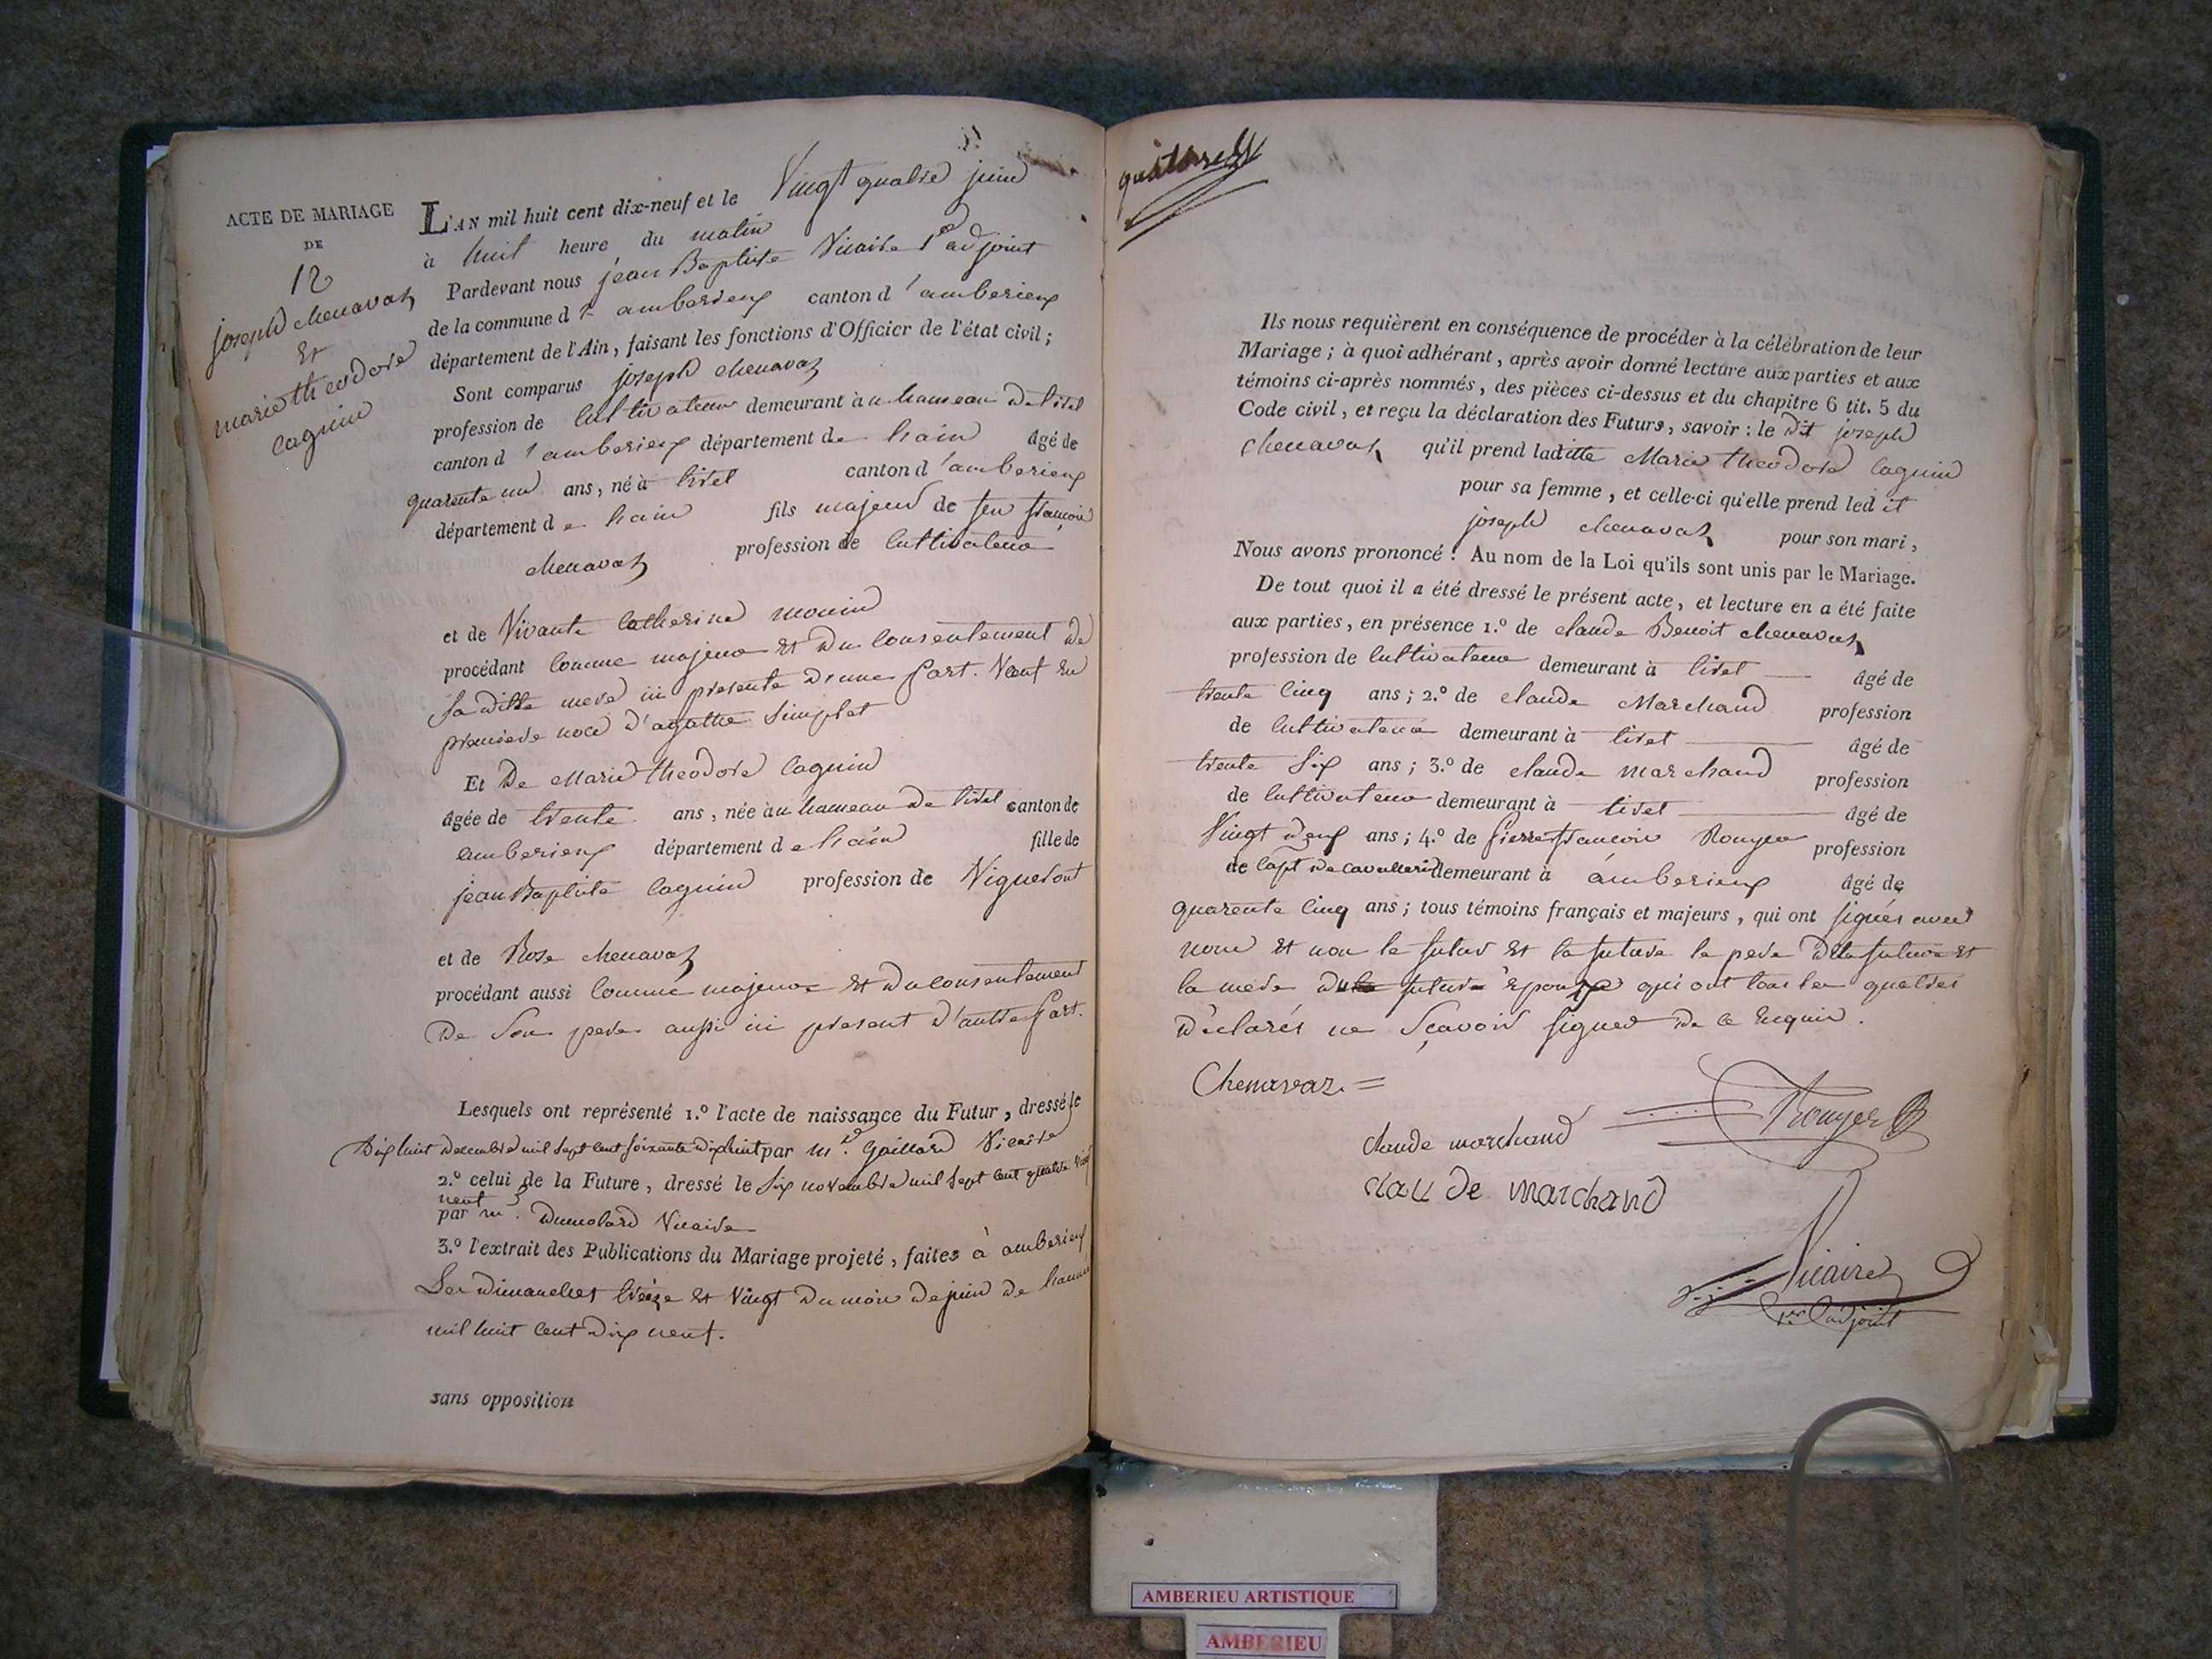 ACTE DE MARIAGE
DE
12
joseph chenavaz
Et
marie theodore
caguin
L'AN mil huit cent dix-neuf et le Vingt quatre juin
à huit heure du matin
Pardevant nous jean Baptiste Vicaire 1er adjoint
de la commune d amberieux canton d'amberieux
département de l'Ain, faisant les fonctions d'Officier de l'état civil;
Sont comparus joseph chenavaz
profession de Cultivateur demeurant au hameau de tiret
canton d'amberieux département de hain âgé de
quarente un ans, né à tiret canton d'amberieux
département de hain fils majeur de feu françois
chenavaz profession de Cultivateur
et de Vivante Catherine monin
procédant comme majeur et du consentement de
sa ditte mere ici presente d'une part. Veuf en
premiere noce d'agathe simplet
Et De Marie theodore caguin
âgée de trente ans, née au hameau de tiret canton de
amberieux département de hain fille de
jean Baptiste caguin profession de Vigneront
et de Rose chenavaz
procédant aussi comme majeure et du consentement
de son pere aussi ici present d'autre part.
Lesquels ont représenté 1.º l'acte de naissance du Futur, dressé le
Dix huit decembre mil sept cent soixante dix huit par mr. Gaillard Vicaire
2.º celui de la Future, dressé le six novembre mil sept cent quatre vingt
neuf
par mr. Dumolard Vicaire
3.º l'extrait des Publications du Mariage projeté, faites à amberieux
Les dimanches treize et vingt du mois de juin de
mil huit cent dix neuf.
sans opposition
quatorze
Ils nous requièrent en conséquence de procéder à la célébration de leur
Mariage; à quoi adhérant, après avoir donné lecture aux parties et aux
témoins ci-après nommés, des pièces ci-dessus et du chapitre 6 tit. 5 du
Code civil, et reçu la déclaration des Futurs, savoir: le dit joseph
chenavaz qu'il prend laditte Marie theodore caguin
pour sa femme, et celle-ci qu'elle prend ledit
joseph chenavaz pour son mari,
Nous avons prononcé: Au nom de la Loi qu'ils sont unis par le Mariage.
De tout quoi il a été dressé le présent acte, et lecture en a été faite
aux parties, en présence 1.º de claude Benoit chenavaz
profession de Cultivateur demeurant à tiret âgé de
trente cinq ans; 2.º de claude Marchand profession
de Cultivateur demeurant à tiret âgé de
trente six ans; 3.º de claude marchand profession
de Cultivateur demeurant à tiret âgé de
Vingt deux ans; 4.º de Pierre françois Rouyer profession
de Capt de cavallerie demeurant à amberieux âgé de
quarente cinq ans; tous témoins français et majeurs, qui ont signés avec
nous et non le futur et la future le pere de la future et
la mere du futur epoux qui ont tous les quatres
déclarés ne sçavoir signer de ce enquis.
Chenavaz
Rouyer
claude marchand
clau de marchand
Vicaire
1er adjoint
AMBERIEU ARTISTIQUE
AMBERIEU